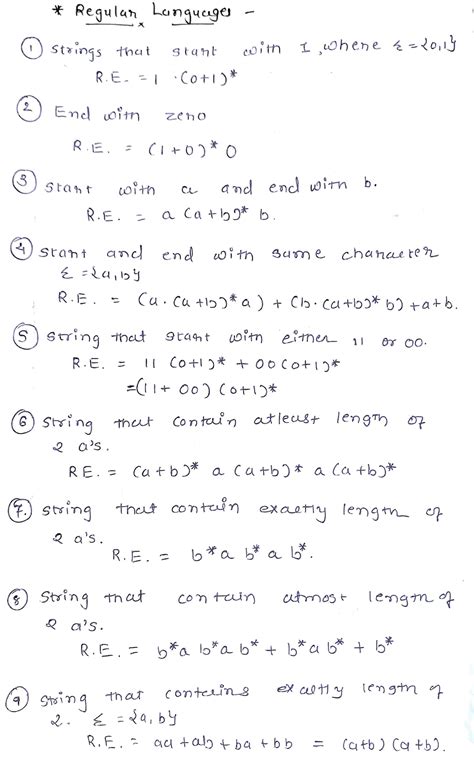 * Regular Languages -
① Strings that start with 1, where Σ = {0,1}
R.E. = 1 · (0+1)*
② End with zero
R.E. = (1+0)* 0
③ start with a and end with b.
R.E. = a (a+b)* b.
④ start and end with same character
Σ = {a,b}
R.E. = (a · (a+b)* a) + (b · (a+b)* b) + a+b.
⑤ string that start with either 11 or 00.
R.E. = 11 (0+1)* + 00 (0+1)*
= (11+00) (0+1)*
⑥ string that contain atleast length of
2 a's.
RE. = (a+b)* a (a+b)* a (a+b)*
⑦. string that contain exactly length of
2 a's.
R.E. = b* a b* a b*.
⑧ String that contain atmost length of
2 a's.
R.E. = b* a b* a b* + b* a b* + b*
⑨ string that contains exactly length of
2. Σ = {a,b}
R.E. = aa + ab + ba + bb = (a+b) (a+b).